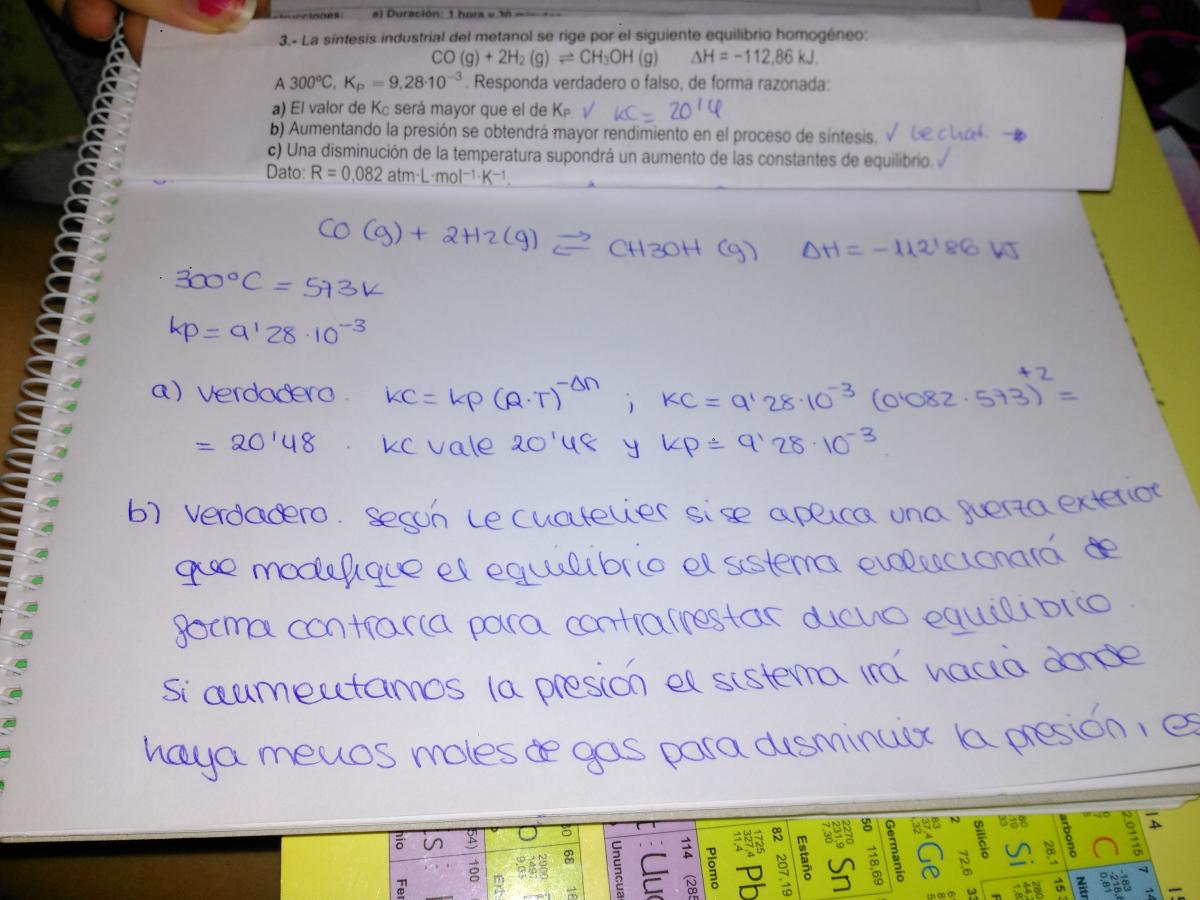 a) Duración: 1 hora y 30 minutos
3.- La síntesis industrial del metanol se rige por el siguiente equilibrio homogéneo:
CO (g) + 2H₂ (g) ⇌ CH₃OH (g) ΔH = −112,86 kJ.
A 300ºC, KP = 9,28·10⁻³. Responda verdadero o falso, de forma razonada:
a) El valor de KC será mayor que el de KP ✓ KC = 20'4
b) Aumentando la presión se obtendrá mayor rendimiento en el proceso de síntesis. ✓ Le chat. →
c) Una disminución de la temperatura supondrá un aumento de las constantes de equilibrio. ✓
Dato: R = 0,082 atm·L·mol⁻¹·K⁻¹.
CO (g) + 2H2 (g) ⇌ CH3OH (g) ΔH = -112'86 KJ
300ºC = 573K
kp = 9'28·10⁻³
a) Verdadero. KC = Kp (R·T)^-Δn ; KC = 9'28·10⁻³ (0'082·573)^+2 =
= 20'48. KC vale 20'48 y kp = 9'28·10⁻³.
b) Verdadero. Según Le Chatelier si se aplica una fuerza exterior
que modifique el equilibrio el sistema evolucionará de
forma contraria para contrarrestar dicho equilibrio.
Si aumentamos la presión el sistema irá hacia donde
haya menos moles de gas para disminuir la presión, es
54) 100
68
114 (285
Ununcua
82 207,19
1725
327,4
11,4
Pb
Plomo
50 118,69
2270
231,9
7,30
Sn
Estaño
Ge
72,6
Germanio
28,1
Si
Silicio
2,01115
C
arbono
14
7
Nitr